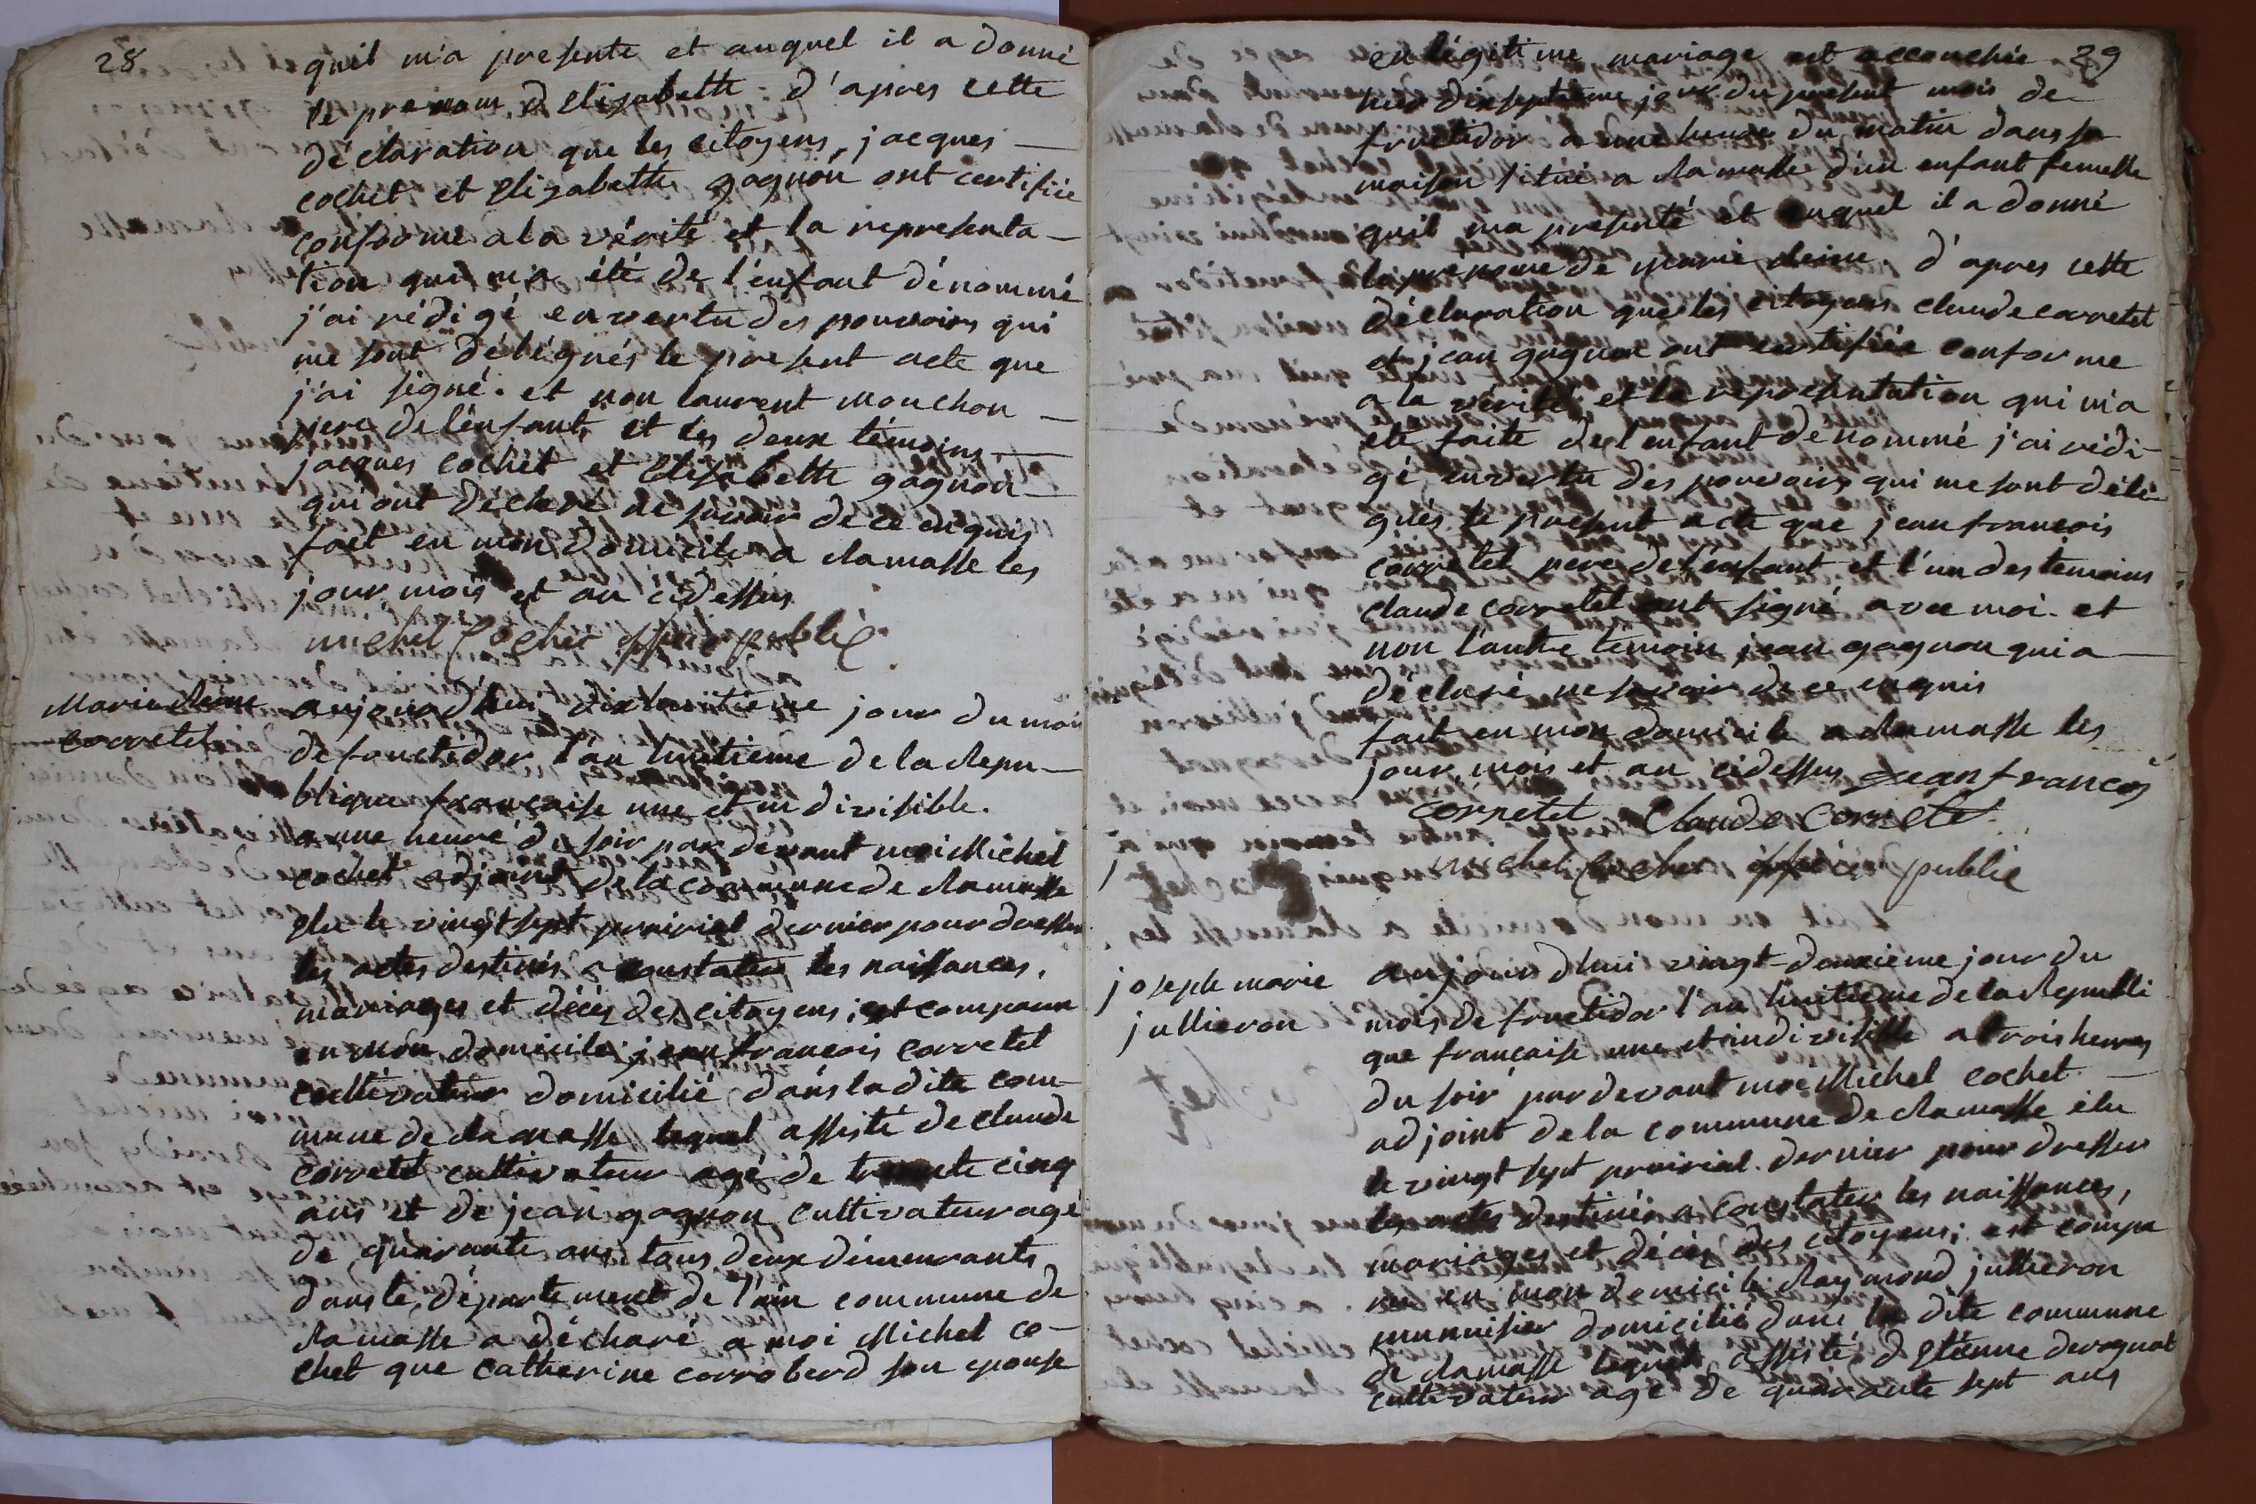 28
qu'il m'a presente et auquel il a donné
le prenom d'Elizabette d'apres cette
déclaration que les citoyens jacques
cochet et Elizabette gagnon ont certifiée
conforme a la vérité et la representa-
tion qui m'a été de l'enfant dénommé
j'ai rédigé en vertu des pouvoirs qui
me sont délégués le present acte que
j'ai signé. et non laurent mouchon
pere de l'enfant, et les deux témoins
jacques cochet et Elisabette gagnon
qui ont décharé ne savoir de ce enquis
fait en mon domicile a Ramasse les
jour mois et an cidessus
michel Cochet officier public
Marie Reine
corretel
aujourd'hui dixhuitieme jour du mois
de fructidor l'an huitieme de la Repu-
blique française une et indivisible.
a une heure du soir par devant moi Michel
cochet adjoint de la commune de Ramasse
elu le vingt sept prairial dernier pour dresser
les actes destinés a constater les naissances,
mariages et décès des citoyens; est comparu
en mon domicile jean francois corretel
cultivateur domicilié dans la dite com-
mune de Ramasse lequel assisté de claude
corretel cultivateur agé de trente cinq
ans et de jean gagnon cultivateur agé
de quarante ans tous deux démeurants
dans le département de l'ain commune de
Ramasse a décharé a moi Michel co-
chet que catherine corroberd son epouse
29
en légitime mariage est accouchée
hier dixseptieme jour du present mois de
fructidor a une heure du matin dans sa
maison situé a Ramasse d'un enfant femelle
quil ma presenté et auquel il a donné
le prénome de marie Reine. d'apres cette
déclaration que les citoyens claude corretel
et jean gagnon ont certifiée conforme
a la vérité, et la représentation qui m'a
eté faite de l'enfant denommé j'ai rédi-
gé en vertu des pouvoirs qui me sont délé-
gués le present acte que jean francois
corretel pere de l'enfant et l'un des temoins
claude corretel ont signé avec moi. et
non l'autre temoin jean gagnon qui a
déclaré ne savoir de ce enquis
fait en mon domicile a Ramasse les
jour, mois et an cidessus jean francois
corretel Claude Corretel
michel Cochet officier public
joseph marie
jullieron
aujourdhui vingt-deuxième jour du
mois de fructidor l'an huitieme de la Republi
que française une et indivisible a trois heures
du soir pardevant moi Michel cochet
adjoint de la commune de Ramasse élu
le vingt sept prairial dernier pour dresser
les actes destinés a constater les naissances,
mariages et décès des citoyens; est compa
ru en mon domicile Raymond jullieron
menuisier domicilié dans la dite commune
de Ramasse lequel assisté d'Etienne deroguat
cultivateur agé de quarante sept ans